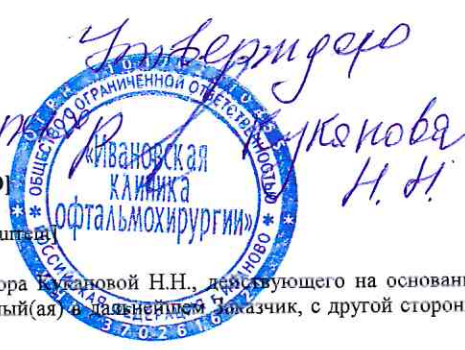 Утверждаю
Куканова
Н. Н.
ОБЩЕСТВО С ОГРАНИЧЕННОЙ ОТВЕТСТВЕННОСТЬЮ
«Ивановская
клиника
офтальмохирургии»
РОССИЙСКАЯ ФЕДЕРАЦИЯ
ора Кукановой Н.Н., действующего на основани
ный(ая) в дальнейшем Заказчик, с другой сторон